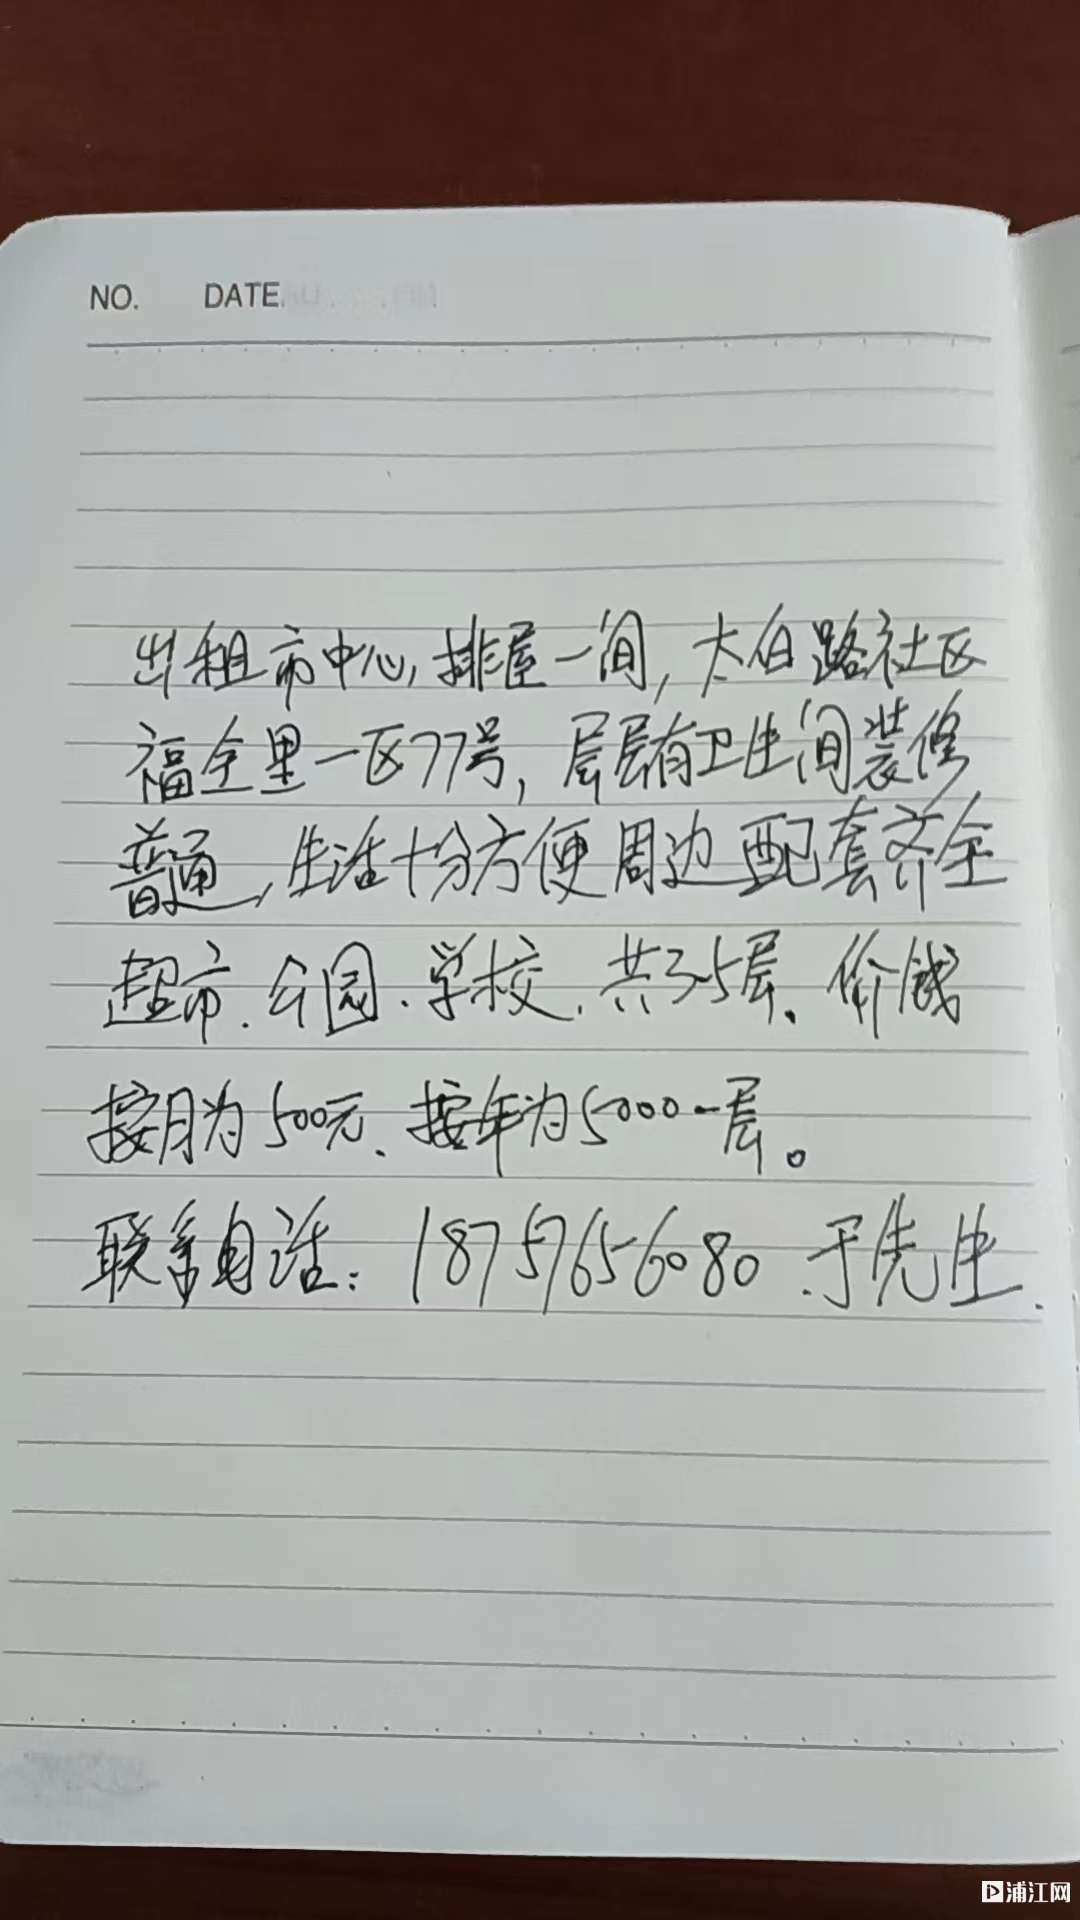 NO. DATE.
出租市中心,排屋一间,太白路社区
福全里一区77号,层层有卫生间装修
普通,生活十分方便周边配套齐全
超市.公园.学校.共3.5层、价钱
按月为500元、按年为5000一层。
联系电话:18757656080 于先生.
浦江网